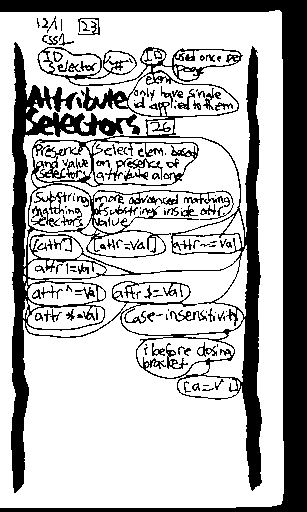 12/11 23
CSS1
ID selector "#" ID used once per page
elem only have single id applied to them
Attribute
Selectors 26
Presence and value selectors Select elem. based on presence of attribute alone
Substring matching selectors more advanced matching of substrings inside attr value
[attr] [attr=val] attr~=val
attr|=val
attr^=val attr$=val
attr*=val Case-insensitivity
i before closing bracket
[a=V i]